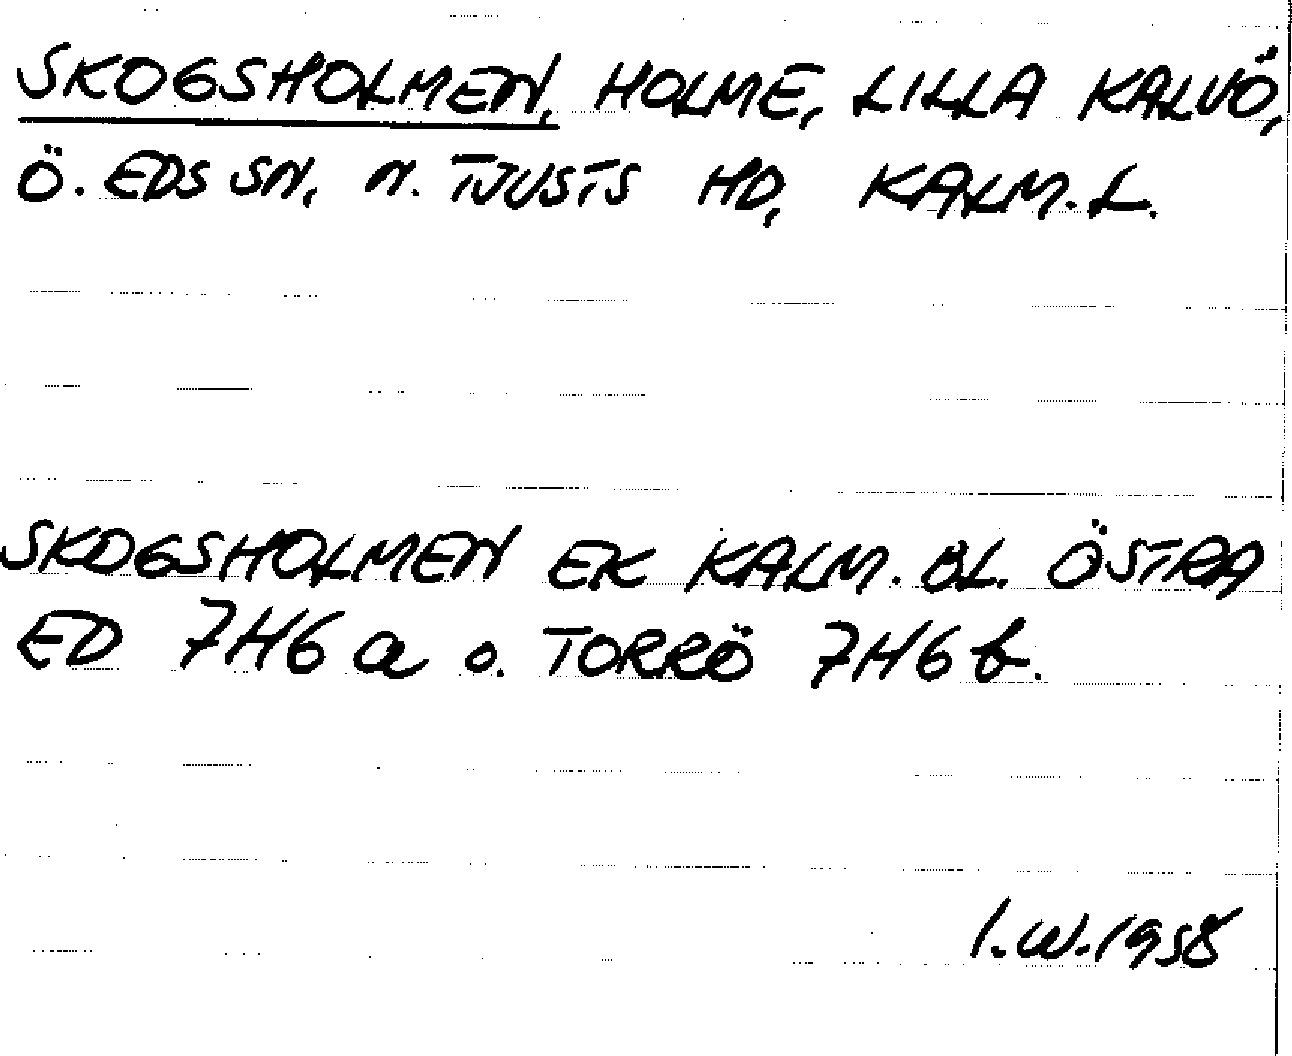 SKOGSHOLMEN, HOLME, LILLA KALVÖ,
Ö. EDS SN, N. TJUSTS HD, KALM. L.
SKOGSHOLMEN EK KALM. BL. ÖSTRA
ED 7H6a o. TORRÖ 7H6b.
I.W. 1958